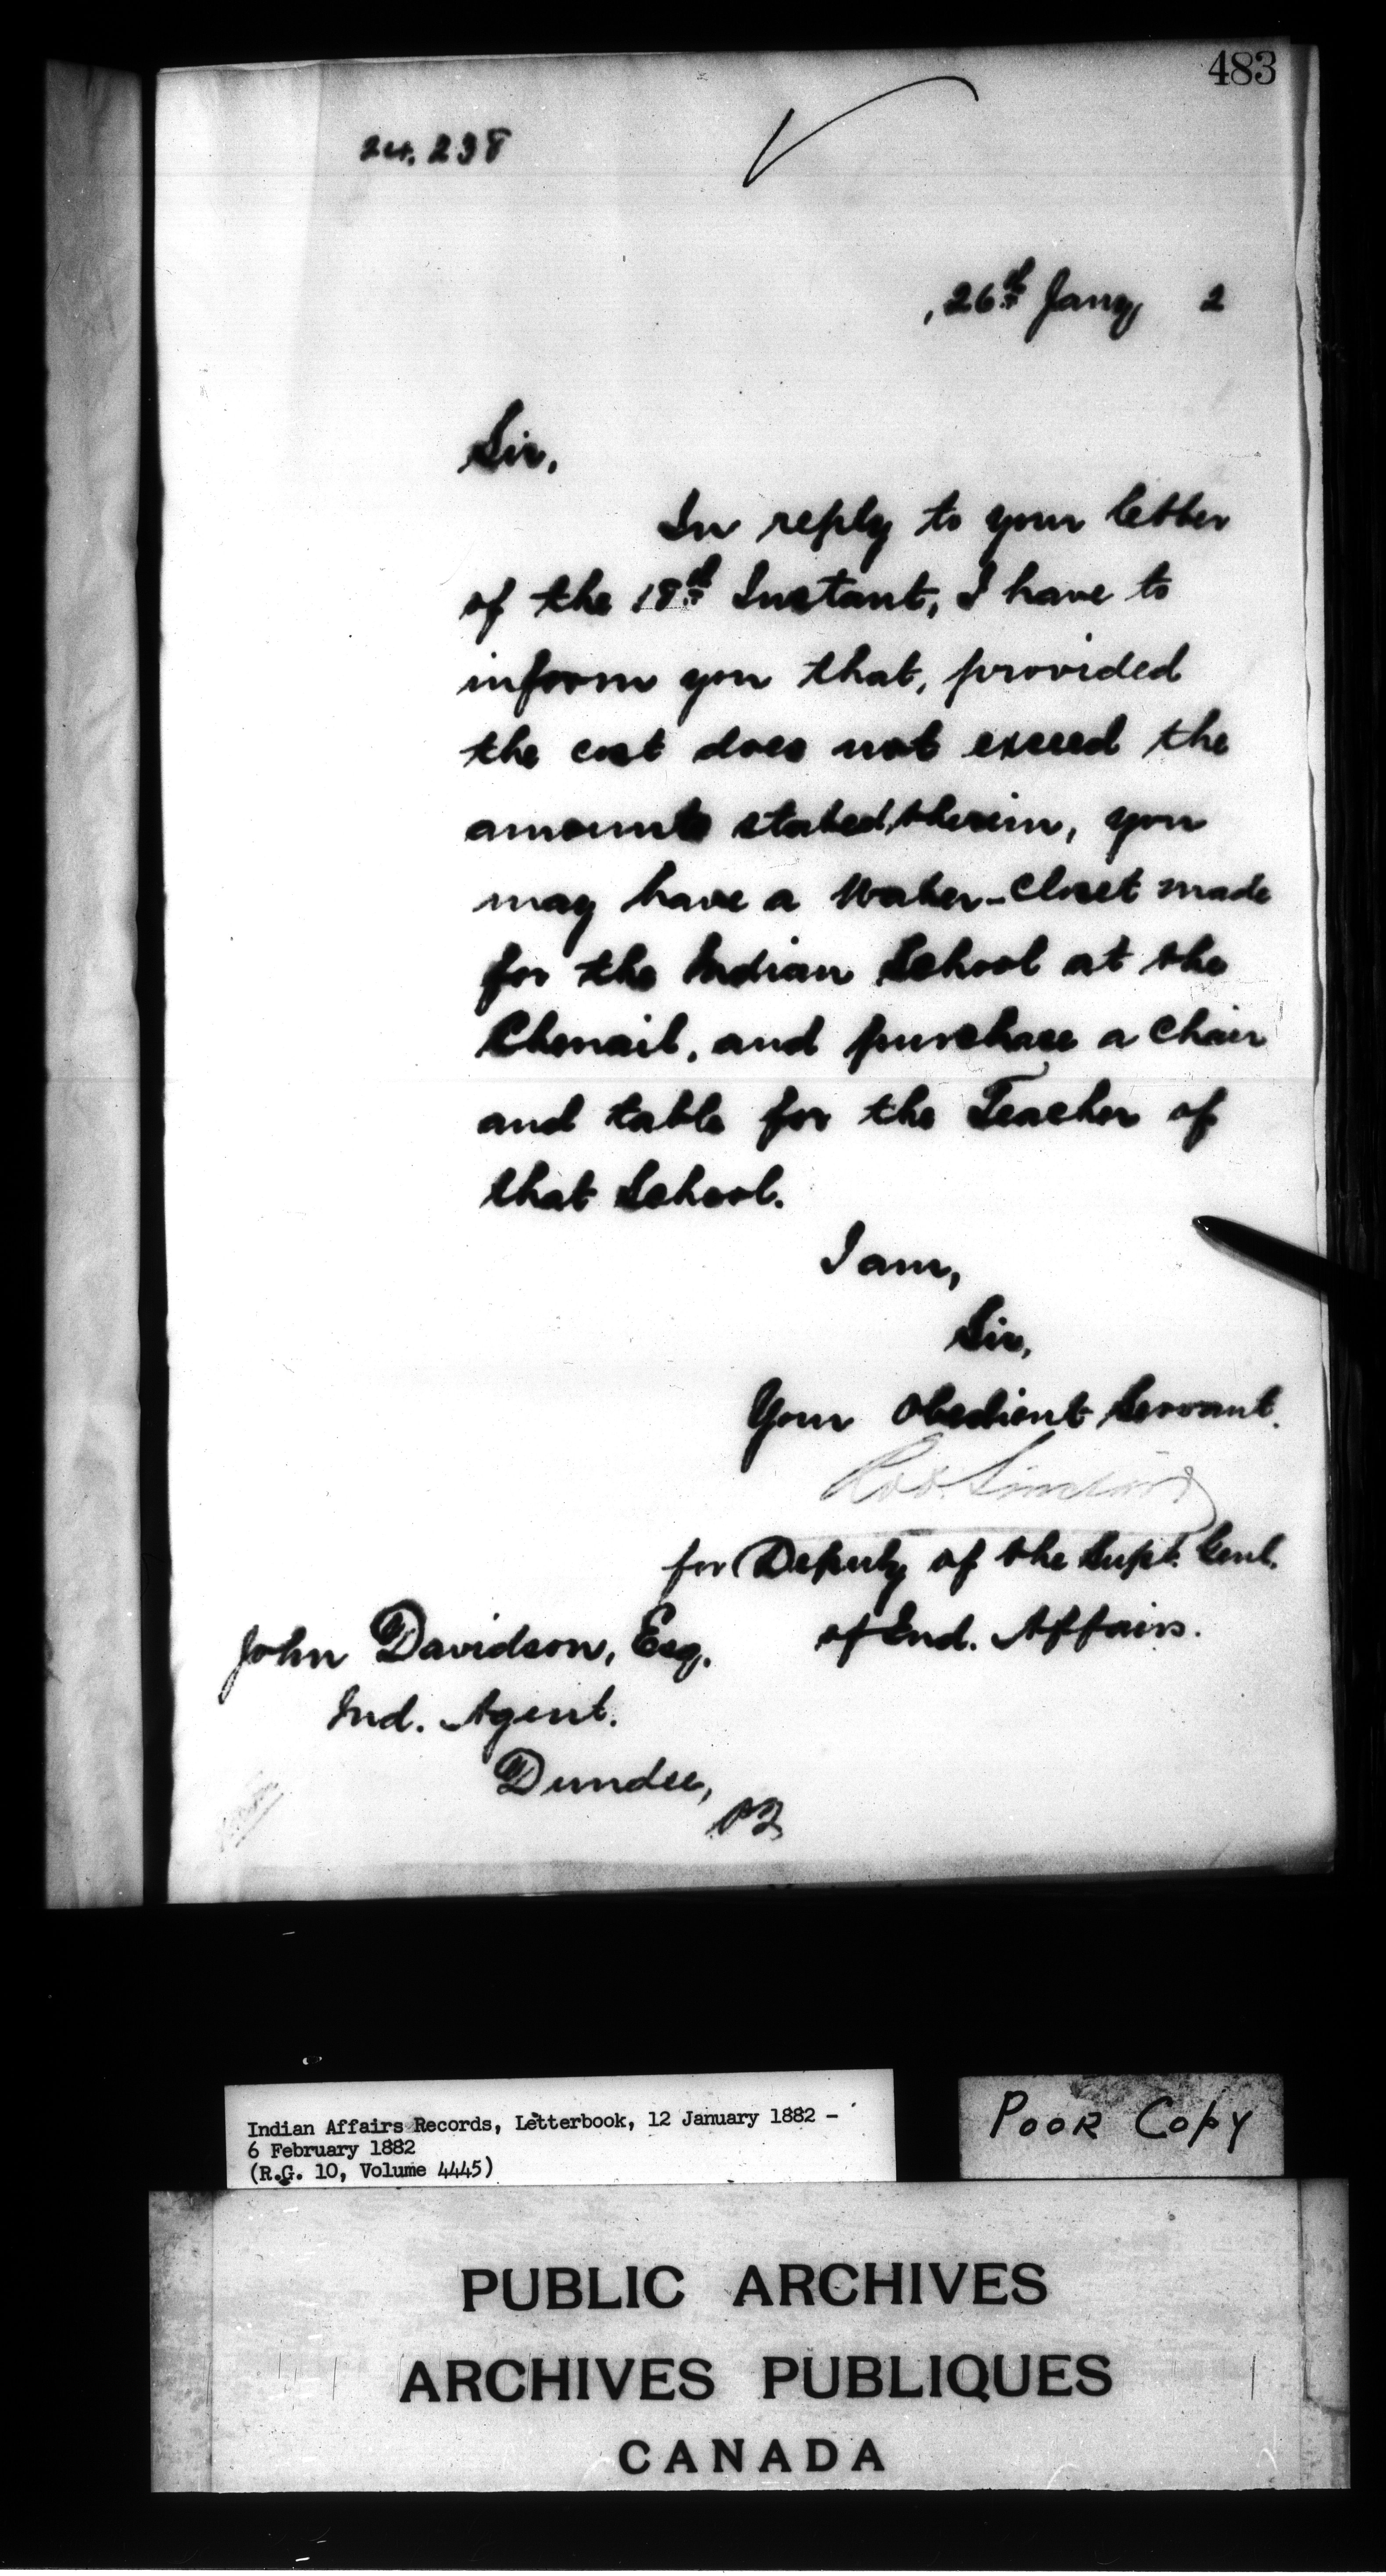 483
24.238
, 26th Jany 2
Sir,
In reply to your letter
of the 18th Instant, I have to
inform you that, provided
the cost does not exceed the
amounts stated therein, you
may have a Water-Closet made
for the Indian School at the
Chenail, and purchase a Chair
and table for the Teacher of
that School.
I am,
Sir,
Your Obedient Servant.
Rob. Sinclair
for Deputy of the Supt. Genl.
of Ind. Affairs.
John Davidson, Esq.
Ind. Agent.
Dundee,
PQ
Indian Affairs Records, Letterbook, 12 January 1882 -
6 February 1882
(R.G. 10, Volume 4445)
POOR COPY
PUBLIC ARCHIVES
ARCHIVES PUBLIQUES
CANADA